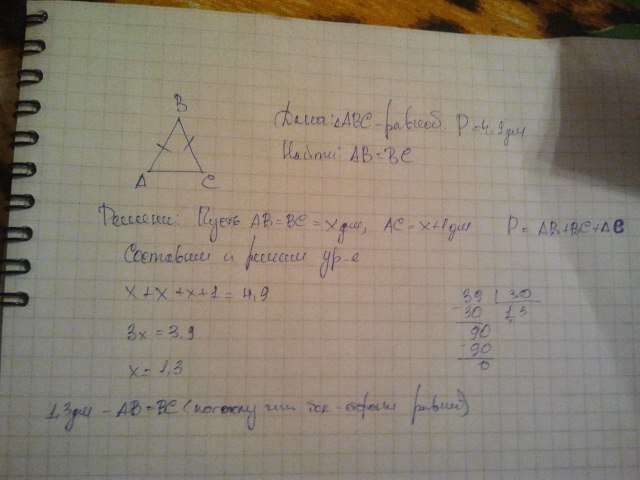 B
A C
Дано: △ABC-равноб. P=4,9дм
Найти: AB=BC
Решени: Пусть AB=BC=x дм, AC=x+1дм P=AB+BC+AC
Составим и решим ур-е
x+x+x+1=4,9
3x=3,9
x=1,3
39 | 30
-30 1,3
90
-90
0
1,3дм - AB=BC (потому что бок-стороны равны)